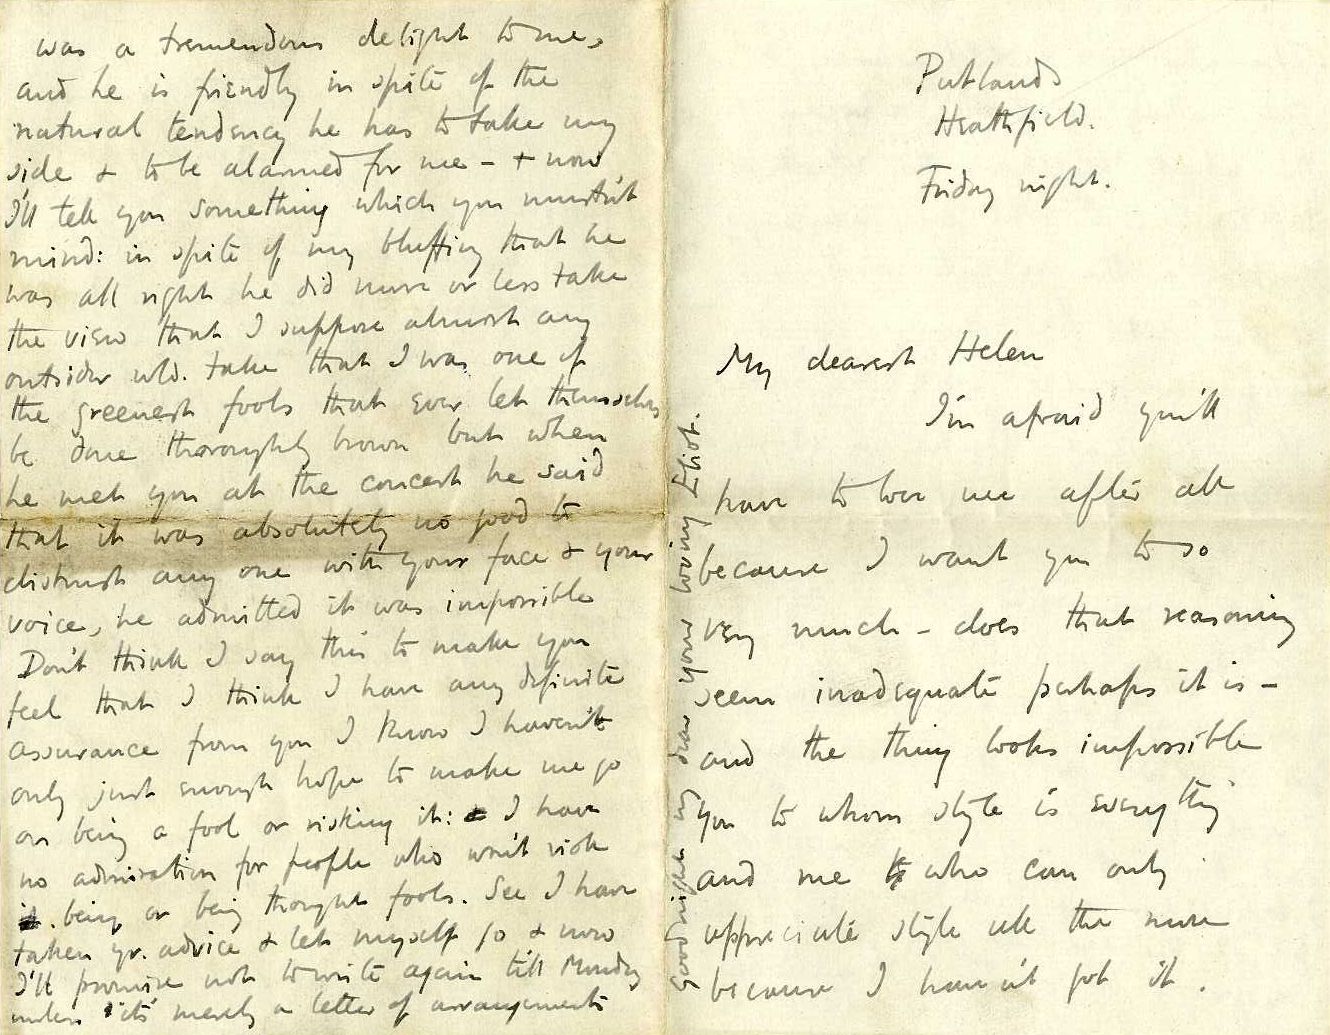 Putlands
Heathfield.
Friday night.
My dearest Helen
I'm afraid you'll
have to love me after all
because I want you to so
very much – does that reasoning
seem inadequate perhaps it is –
and the thing looks impossible
you to whom style is everything
and me who can only
appreciate style all the more
because I haven't got it.
was a tremendous delight to me,
and he is friendly in spite of the
natural tendency he has to take my
side & to be alarmed for me – & now
I'll tell you something which you mustn't
mind: in spite of my bluffing that he
was all right he did more or less take
the view that I suppose almost any
outsider wld. take that I was one of
the greenest fools that ever let themselves
be done thoroughly brown but when
he met you at the concert he said
that it was absolutely no good to
distrust any one with your face & your
voice, he admitted it was impossible
Don't think I say this to make you
feel that I think I have any definite
assurance from you I know I haven't
only just enough hope to make me go
on being a fool or risking it: I have
no admiration for people who won't risk
being or being thought fools. See I have
taken yr. advice & let myself go & now
I'll promise not to write again till Monday
unless it's merely a letter of arrangements
Goodnight my dear your loving Eliot.